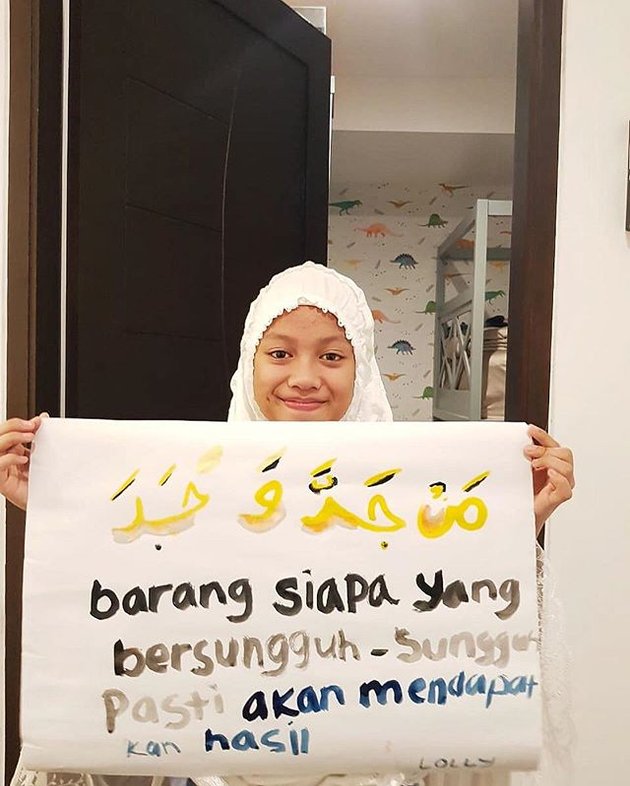 مَنْ جَدَّ وَ جَبَدَ
barang siapa yang
bersungguh-sungguh
Pasti akan mendapat
kan hasil
LOLLY